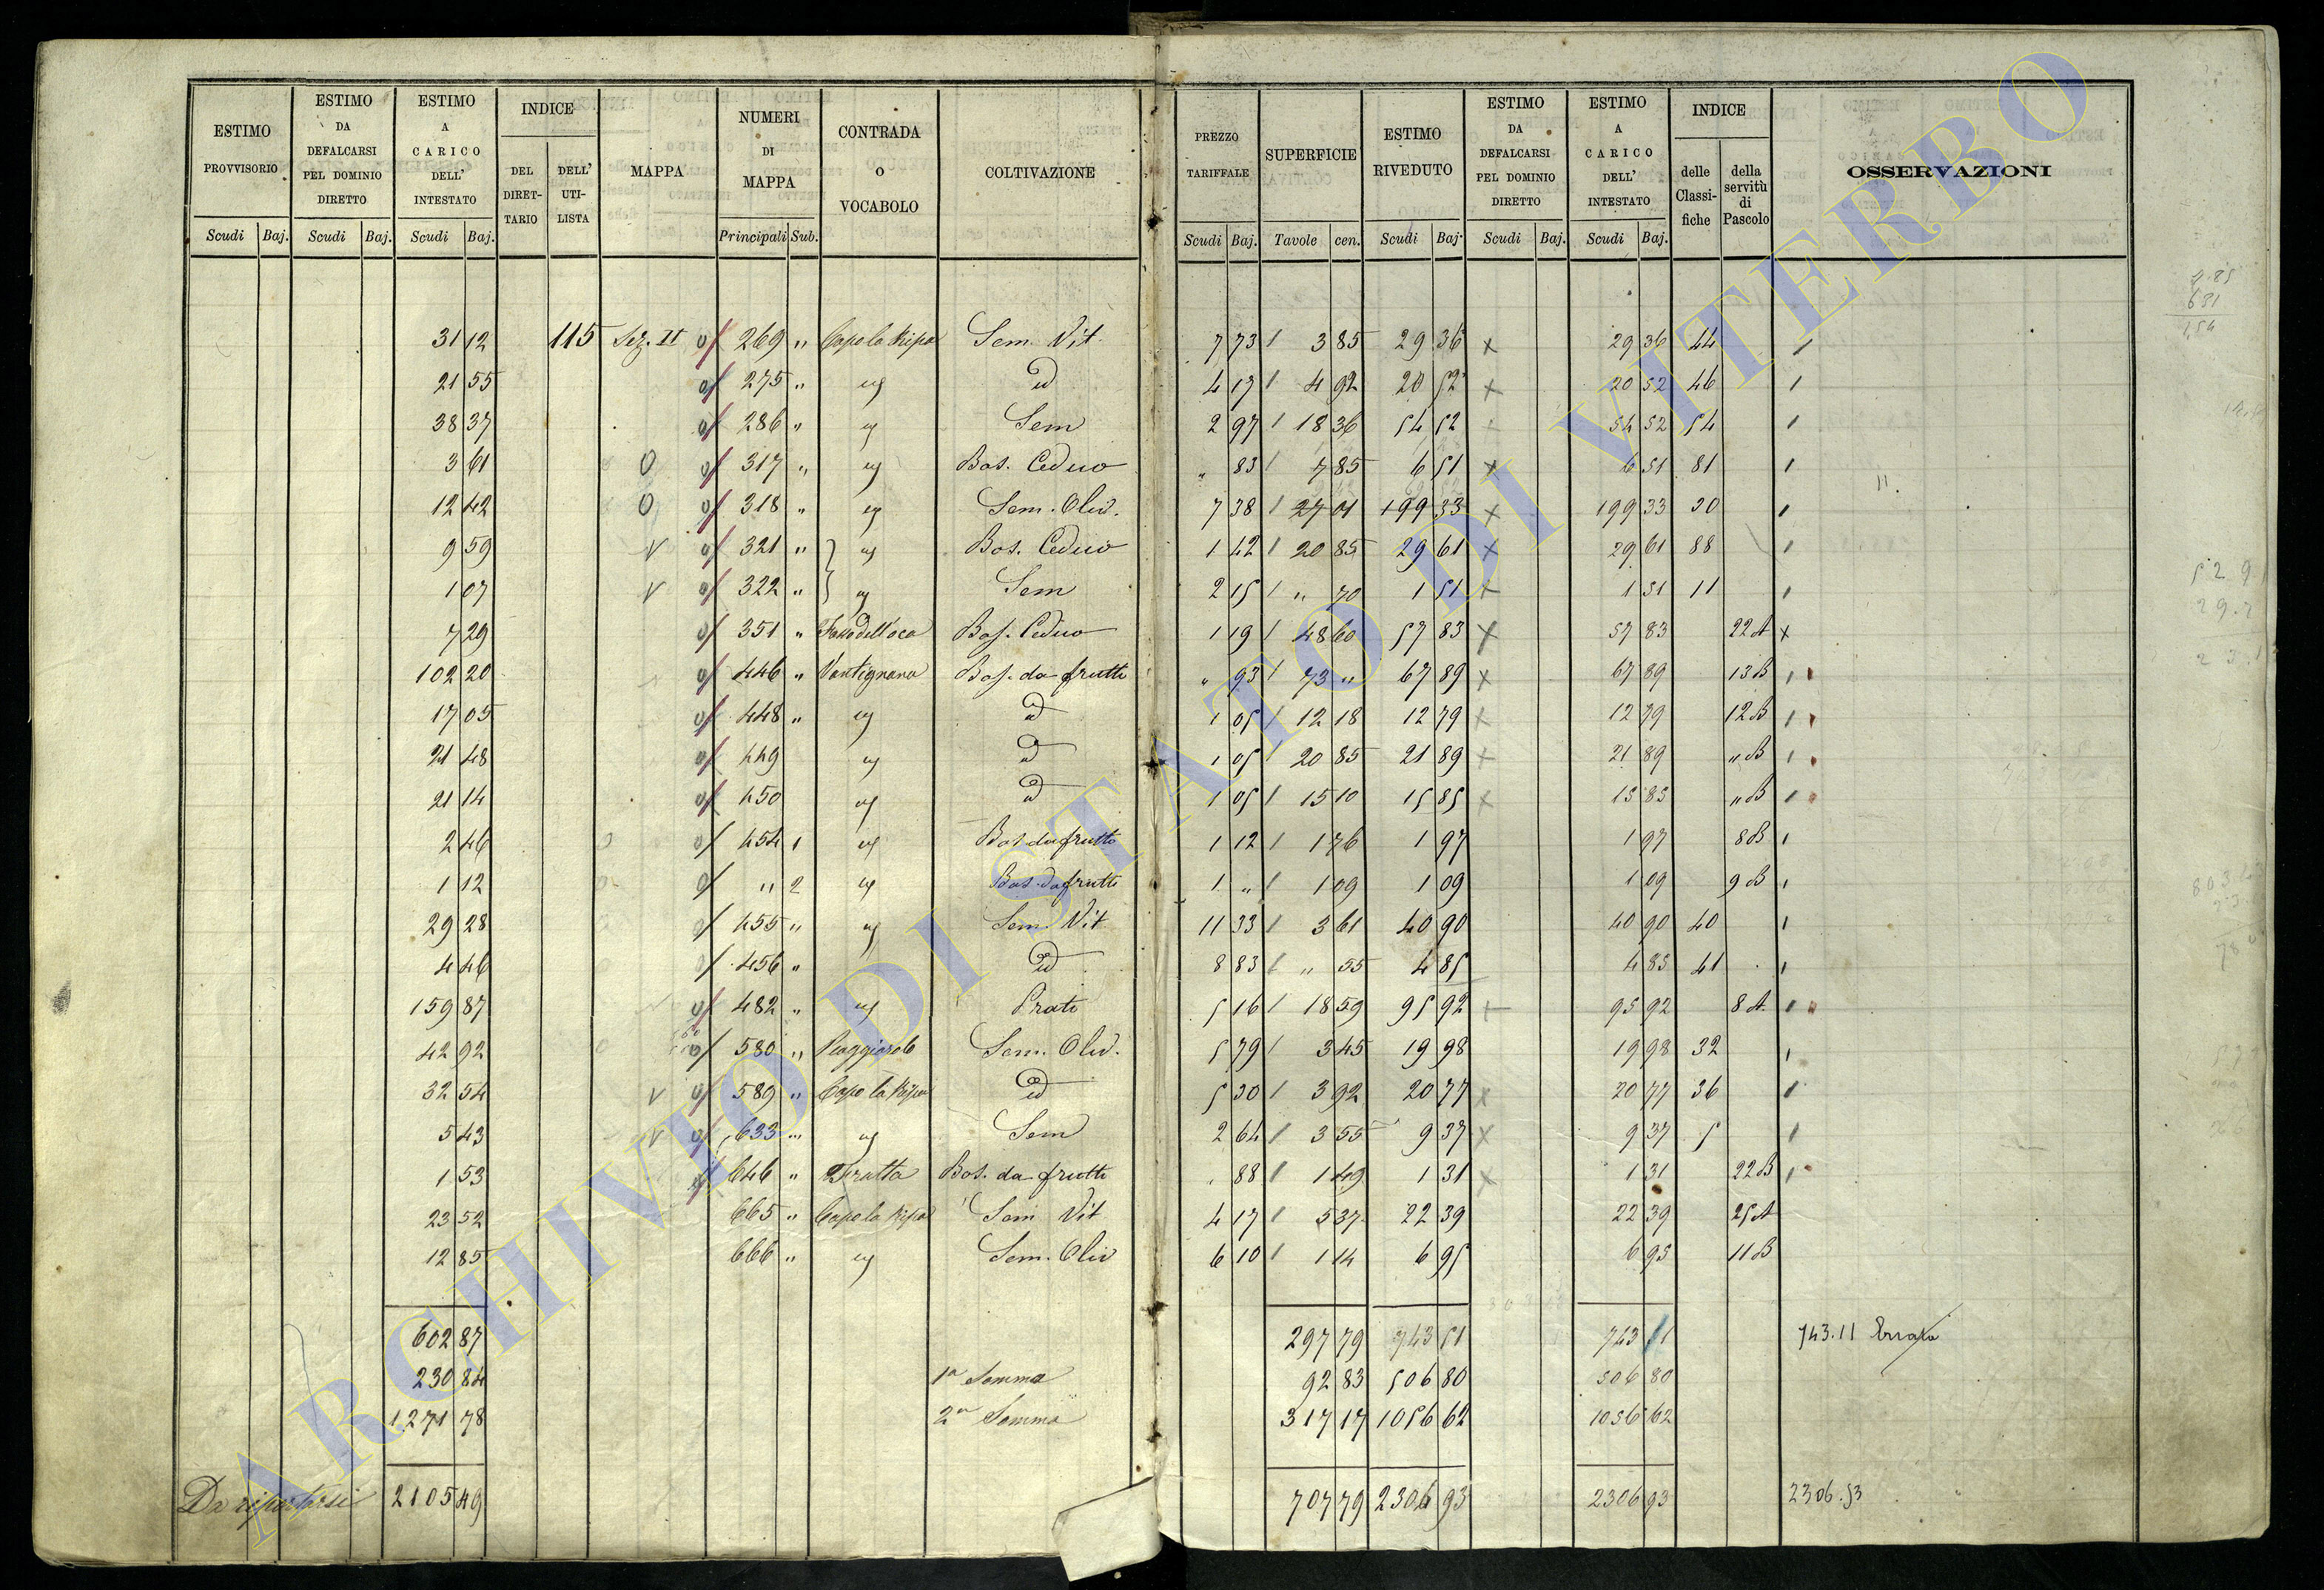 ESTIMO PROVVISORIO | ESTIMO DA DEFALCARSI PEL DOMINIO DIRETTO | ESTIMO A CARICO DELL' INTESTATO | INDICE | MAPPA | NUMERI DI MAPPA | CONTRADA O VOCABOLO | COLTIVAZIONE | PREZZO TARIFFALE | SUPERFICIE | ESTIMO RIVEDUTO | ESTIMO DA DEFALCARSI PEL DOMINIO DIRETTO | ESTIMO A CARICO DELL' INTESTATO | INDICE | OSSERVAZIONI
DEL DIRETTARIO | DELL' UTILISTA | delle Classifiche | della servitù di Pascolo
Scudi | Baj. | Scudi | Baj. | Scudi | Baj. | Principali | Sub. | Scudi | Baj. | Tavole | cen. | Scudi | Baj. | Scudi | Baj. | Scudi | Baj.
31 12 | 115 | Sez. II | 269 " | Capo la Ripa | Sem. Vit. | 7 73 | 3 85 | 29 36 | x | 29 36 | 44
21 55 | 275 " | id | id | 4 17 | 4 92 | 20 52 | x | 20 52 | 46
38 37 | 286 " | id | Sem | 2 97 | 18 36 | 54 52 | 54 52 | 54
3 61 | O | 317 " | id | Bos. Ceduo | " 83 | 7 85 | 6 51 | x | 6 51 | 81
12 42 | O | 318 " | id | Sem. Oliv. | 7 38 | 27 01 | 199 33 | x | 199 33 | 30
9 59 | V | 321 " | id | Bos. Ceduo | 1 42 | 20 85 | 29 61 | x | 29 61 | 88
1 07 | V | 322 " | id | Sem | 2 15 | " 70 | 1 51 | x | 1 51 | 11
7 29 | 351 " | Fosso dell'oca | Bos. Ceduo | 1 19 | 48 60 | 57 83 | x | 57 83 | 22 A | x
102 20 | 446 " | Vantignana | Bos. da frutti | " 93 | 73 " | 67 89 | x | 67 89 | 13 B
17 05 | 448 " | id | id | 1 05 | 12 18 | 12 79 | x | 12 79 | 12 B
21 48 | 449 | id | id | 1 05 | 20 85 | 21 89 | x | 21 89 | " B
21 14 | 450 | id | id | 1 05 | 15 10 | 15 85 | x | 15 85 | " B
2 46 | 454 1 | id | Bos. da frutti | 1 12 | 1 76 | 1 97 | 1 97 | 8 B
1 12 | " 2 | id | Bos. da frutti | 1 " | 1 09 | 1 09 | 1 09 | 9 B
29 28 | 455 " | id | Sem. Vit | 11 33 | 3 61 | 40 90 | 40 90 | 40
4 46 | 456 " | id | 8 83 | " 55 | 4 85 | 4 85 | 41
159 87 | 482 " | id | Prato | 5 16 | 18 59 | 95 92 | 95 92 | 8 A.
42 92 | 580 " | Sem. Oliv. | 5 79 | 3 45 | 19 98 | 19 98 | 32
32 54 | V | 589 " | Capo la Ripa | id | 5 30 | 3 92 | 20 77 | x | 20 77 | 36
5 43 | V | 633 " | id | Sem | 2 64 | 3 55 | 9 37 | x | 9 37 | 5
1 53 | 646 " | Fratta | Bos. da frutti | . 88 | 1 49 | 1 31 | x | 1 31 | 22 B
23 52 | 665 " | Capo la Ripa | Sem Vit | 4 17 | 5 37 | 22 39 | 22 39 | 25 A
12 85 | 666 " | id | Sem. Oliv | 6 10 | 1 14 | 6 95 | 6 95 | 11 B
602 87 | 297 79 | 743 51 | 743 51 | 743.11 Errato
230 84 | 1ª Somma | 92 83 | 506 80 | 506 80
1271 78 | 2ª Somma | 317 17 | 1056 62 | 1056 62
Da riportarsi | 2105 49 | 707 79 | 2306 93 | 2306 93 | 2306.93
ARCHIVIO DI STATO DI VITERBO